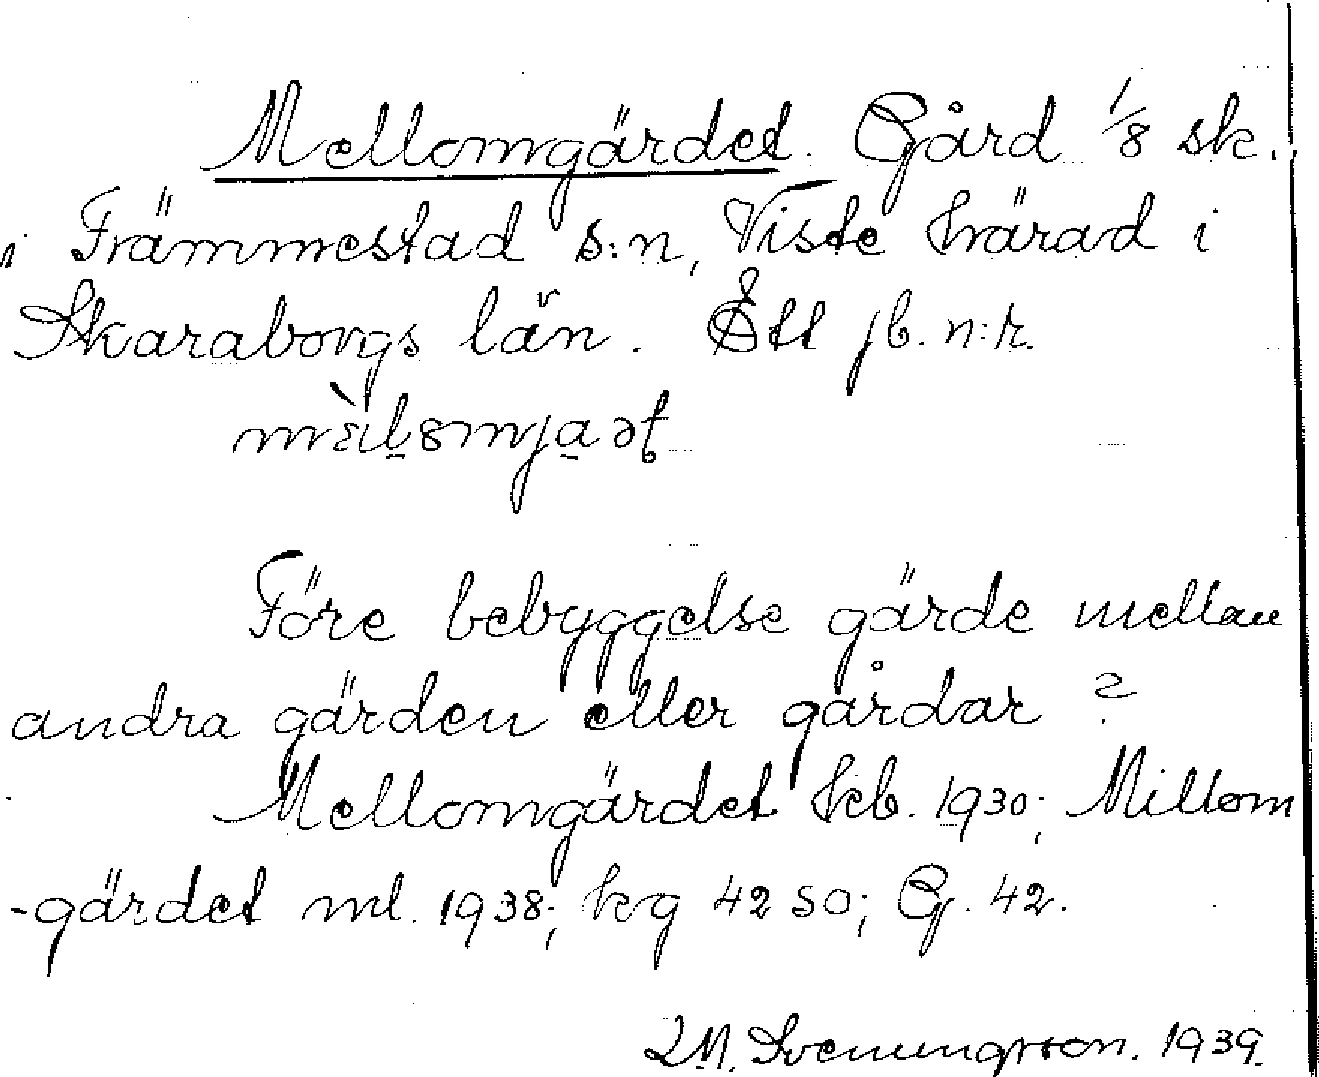 Mellomgärdet. Gård 1/8 sk.
i Främmestad s:n, Viste härad i
Skaraborgs län. Ett jb. n:r.
Före bebyggelse gärde mellan
andra gärden eller gårdar?
Mellomgärdet kb. 1930; Millom
-gärdet ml. 1938; kg 42 SO; G. 42.
M. Svenungsson. 1939.